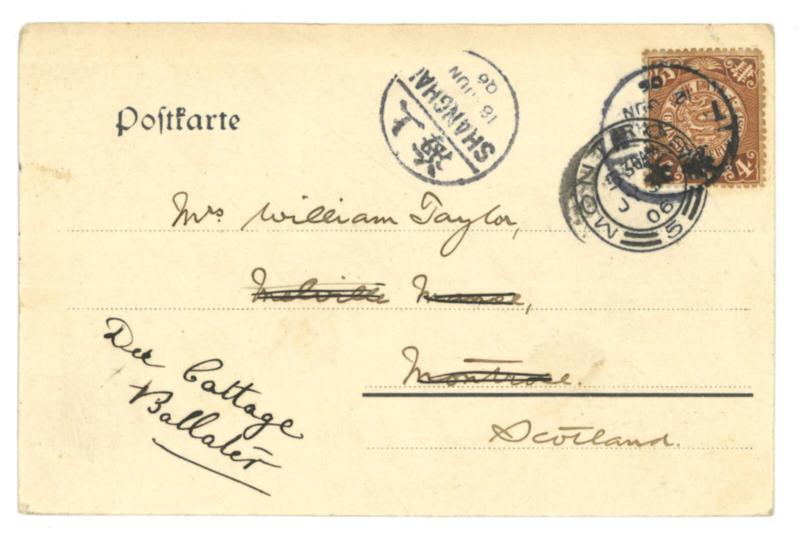 Postkarte
SHANGHAI
18 JUN
06
海上
Mrs William Taylor,
Melville Manse,
Montrose.
Scotland.
Dee Cottage
Ballater
MONTROSE
06
5
4